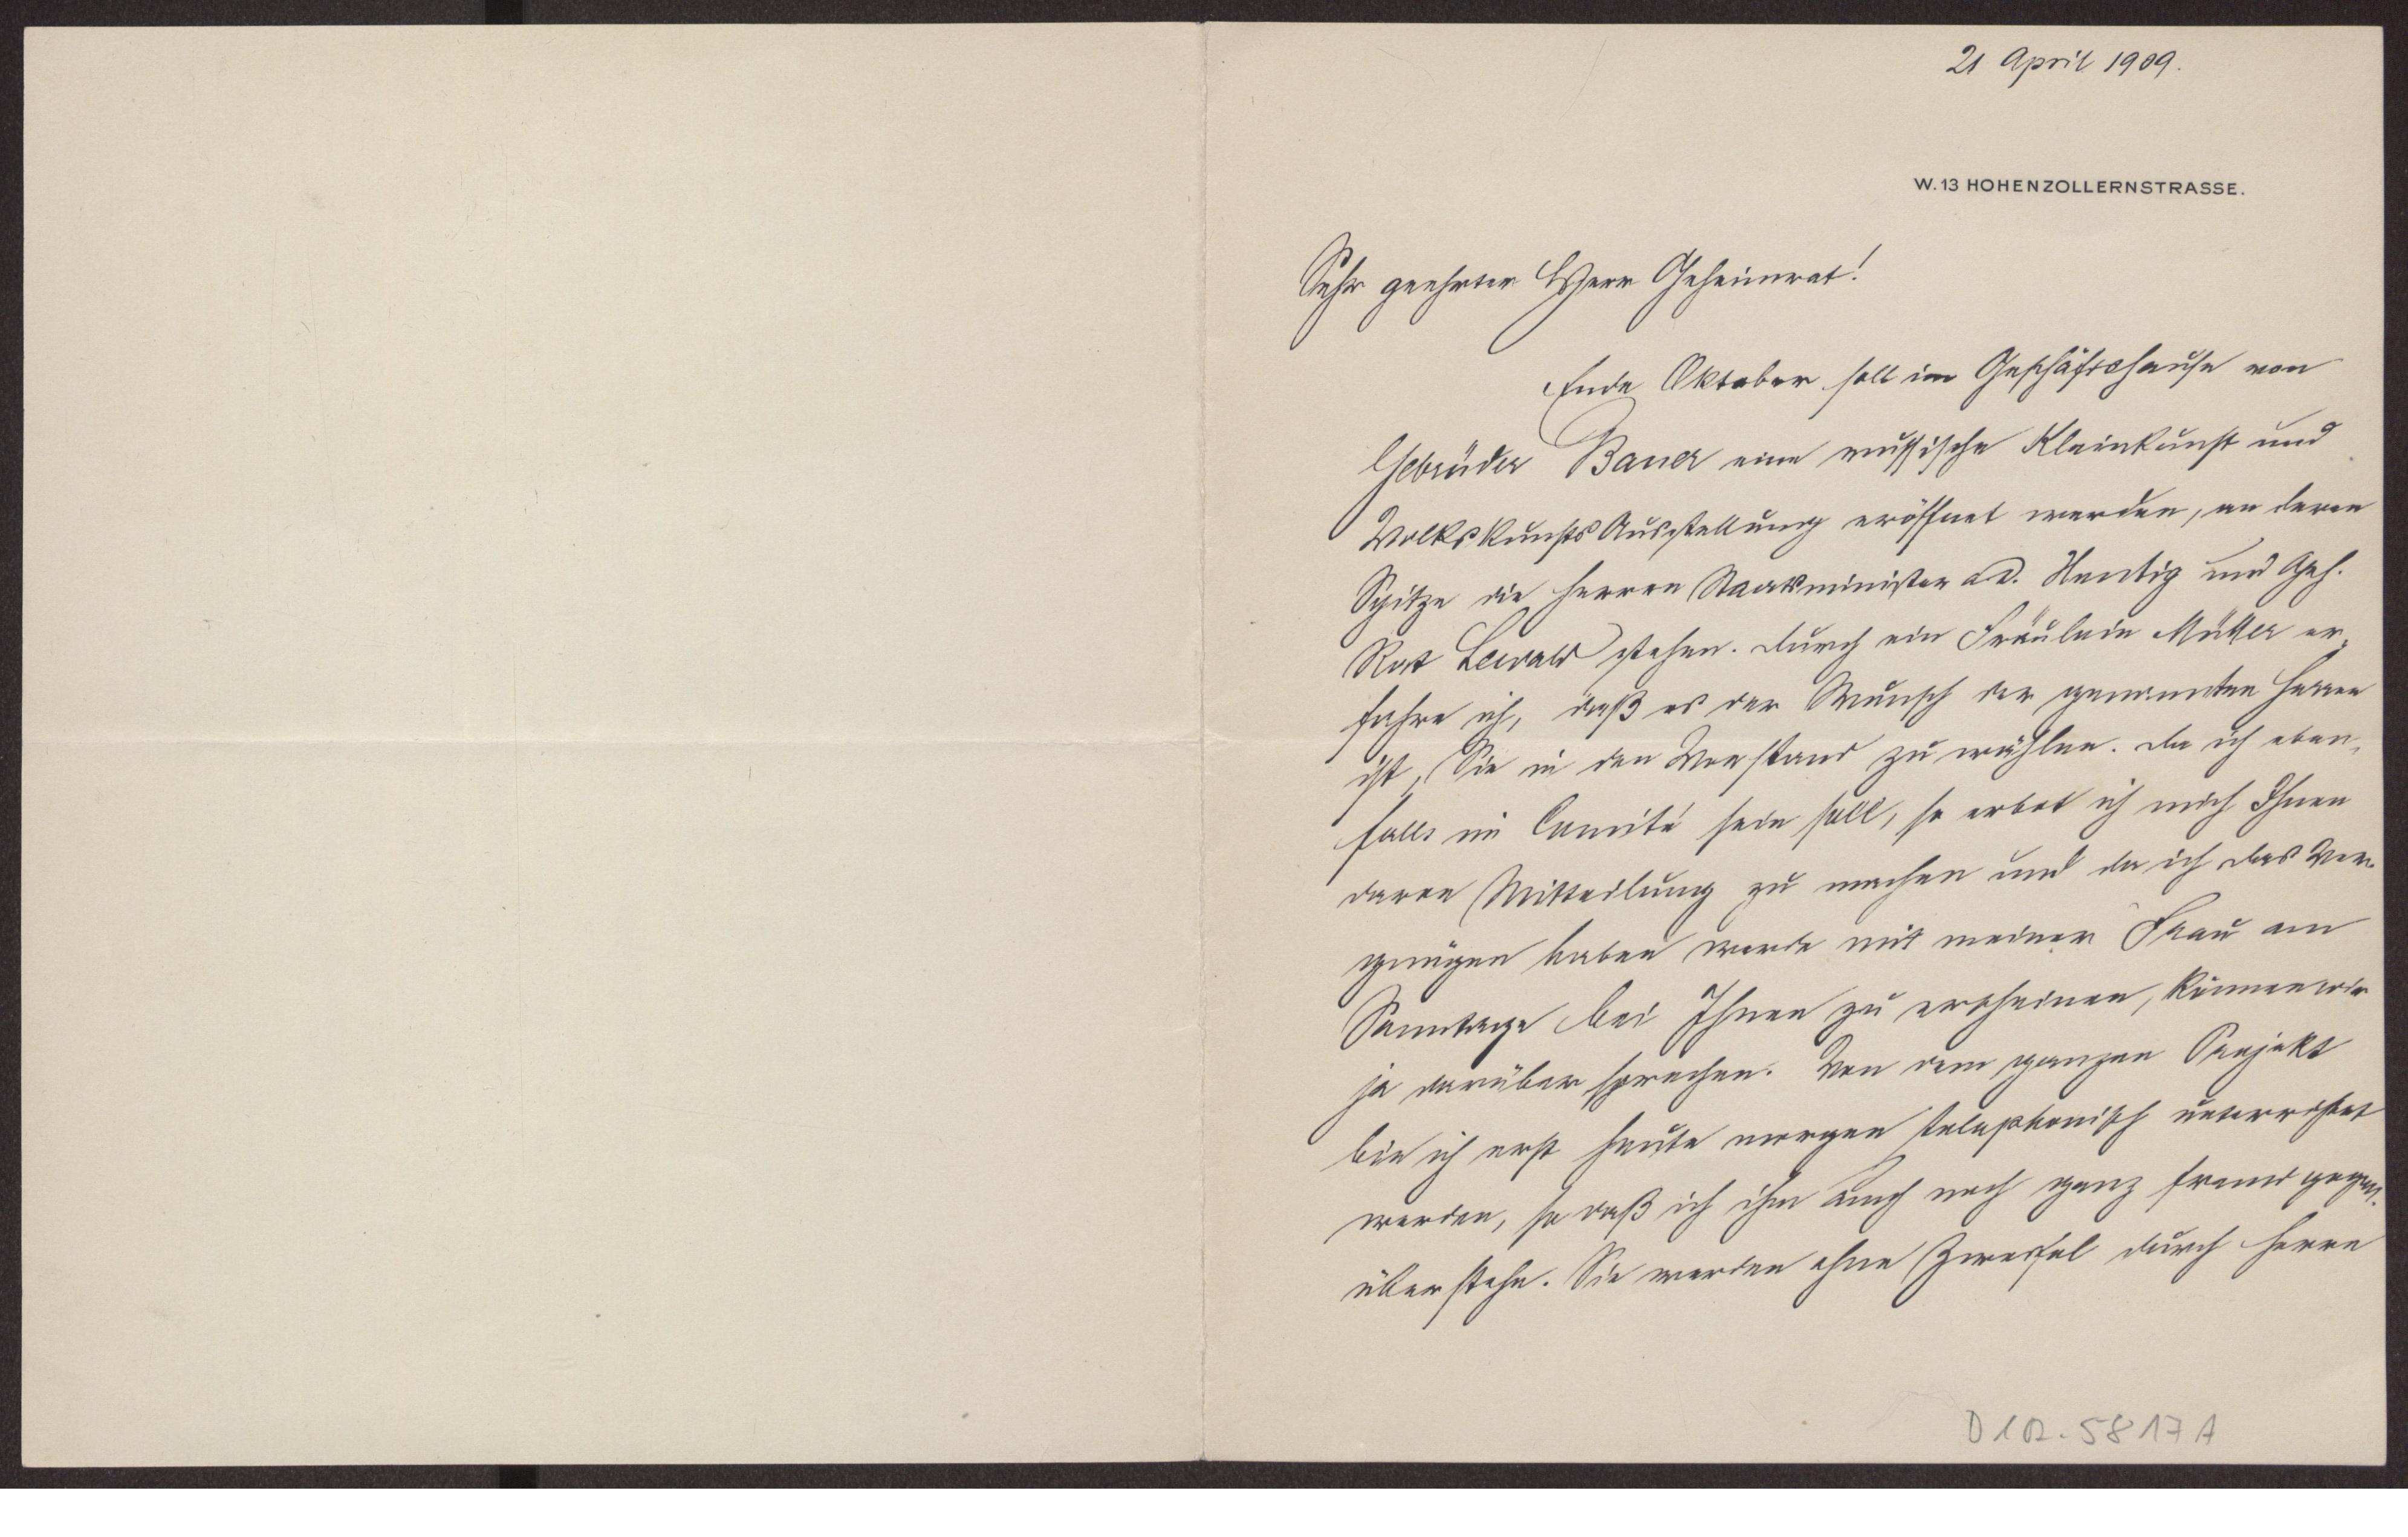 21 April 1909.
W. 13 HOHENZOLLERNSTRASSE.
Sehr geehrter Herr Geheimrat!
Ende Oktober soll im Geschäftshause von
Gebrüder Bauer eine russische Kleinkunst und
Volkskunst Ausstellung eröffnet werden, an deren
Spitze die Herren Staatsminister a. D. Hentig und Geh.
Rat Lewald stehen. Durch ein Fräulein Müller er-
fahre ich, daß es der Wunsch der genannten Herren
ist, Sie in den Vorstand zu wählen. Da ich eben-
falls im Comité sein soll, so erbot ich mich Ihnen
davon Mitteilung zu machen und da ich das Ver-
gnügen haben werde mit meiner Frau am
Sonntage bei Ihnen zu erscheinen, können wir
ja darüber sprechen. Von dem ganzen Projekt
bin ich erst heute morgen telephonisch unterrichtet
worden, so daß ich ihm auch noch ganz fremd gegen-
über stehe. Sie werden ohne Zweifel durch Herrn
D 102. 5817 A